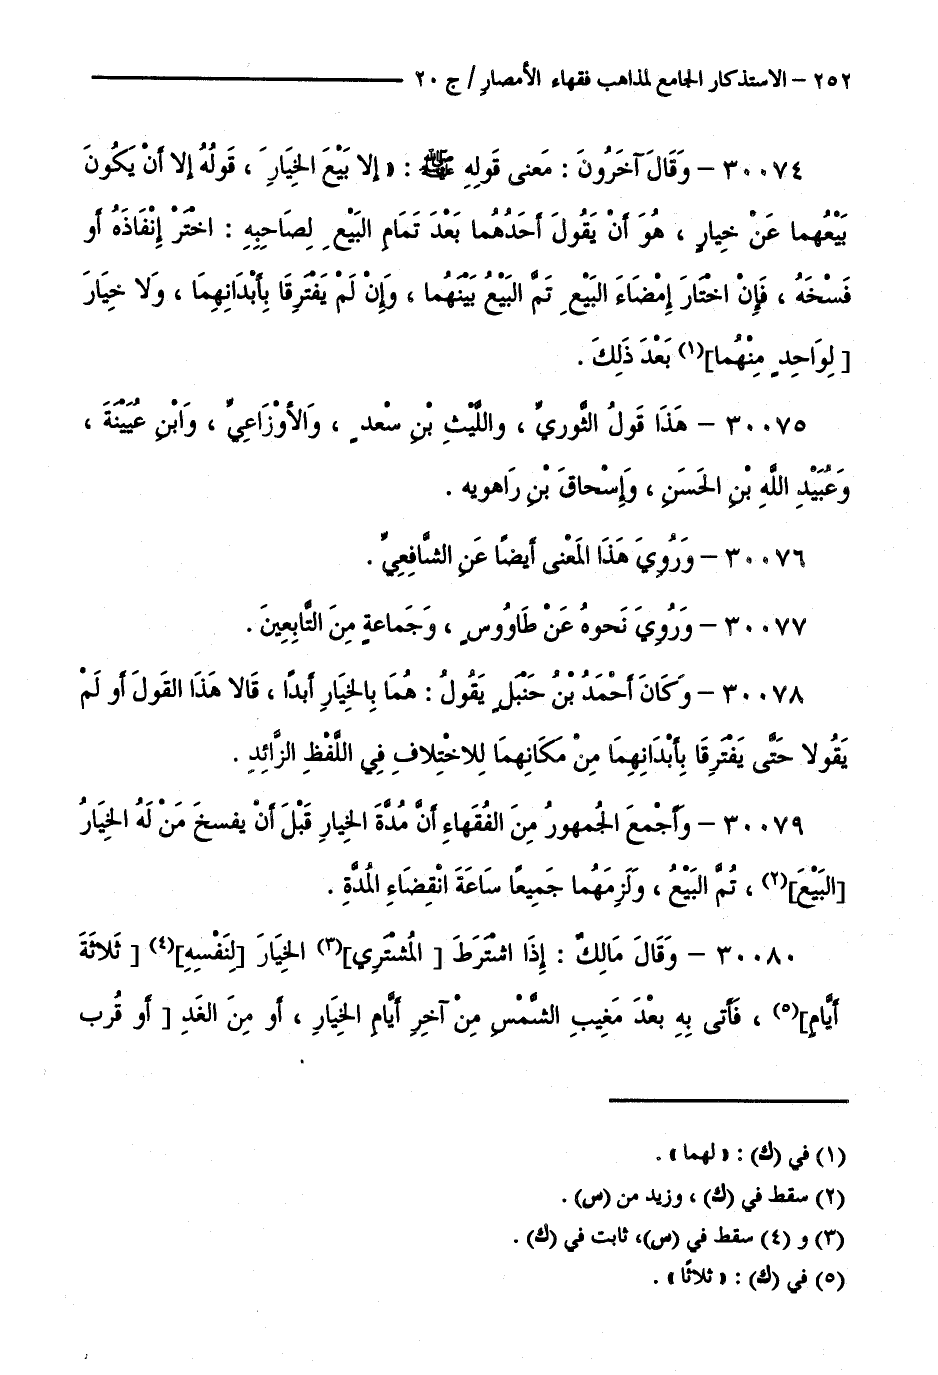 ٢٥٢ – الاستذكار الجامع لمذاهب فقهاء الأمصار / ج ٢٠
٣٠٠٧٤ – وَقَالَ آخَرُونَ : مَعنى قَولِهِ ﷺ : « إلا بَيْعَ الخِيَارِ » ، قَولُهُ إلا أَنْ يَكُونَ
بَيْعُهما عَنْ خيارٍ ، هُوَ أَنْ يَقُولَ أَحَدُهُما بَعْدَ تَمَامِ البَيْعِ لِصَاحِبِهِ : اخْتَرْ إِنْفَاذَهُ أو
فَسْخَهُ ، فَإِنْ اخْتَارَ إمْضَاءَ البَيْعِ تَمَّ البَيْعُ بَيْنَهُما ، وَإِنْ لَمْ يَفْتَرِقَا بِأَبْدَانِهِمَا ، وَلا خِيَارَ
[ لِوَاحِدٍ مِنْهُما](١) بَعْدَ ذَلِكَ .
٣٠٠٧٥ – هَذَا قَولُ الثَّوريِّ ، والليْثِ بْنِ سعْدٍ ، وَالأوْزَاعِيِّ ، وَابْنِ عُيَيْنَةَ ،
وَعُبَيْدِ اللَّهِ بْنِ الحَسَنِ ، وَإِسْحاقَ بْنِ رَاهويه .
٣٠٠٧٦ – وَرُوِيَ هَذَا المَعْنى أَيضًا عَنِ الشَّافِعِيِّ .
٣٠٠٧٧ – وَرُوِيَ نَحوهُ عَنْ طَاوُوسٍ ، وَجَماعةٍ مِنَ التَّابِعِينَ .
٣٠٠٧٨ – وَكَانَ أَحْمَدُ بْنُ حَنْبَلٍ يَقُولُ : هُمَا بِالخِيَارِ أبدًا ، قَالا هَذَا القَولَ أو لَمْ
يَقُولا حَتَّى يَفْتَرِقَا بِأَبْدَانِهِمَا مِنْ مَكَانِهِمَا لِلاخْتِلافِ فِي اللَّفْظِ الزَّائِدِ .
٣٠٠٧٩ – وَأَجْمعَ الجُمهورُ مِنَ الفُقَهاءِ أَنَّ مُدَّةَ الخيارِ قَبْلَ أَنْ يفسخَ مَنْ لَهُ الخِيَارُ
[البَيْعَ](٢) ، تُمَّ البَيْعُ ، وَلَزِمَهُما جَمِيعًا سَاعَةَ انْقِضَاءِ المُدَّةِ .
٣٠٠٨٠ – وَقَالَ مَالِكٌ : إِذَا اشْتَرَطَ [ المُشْتَرِي](٣) الخِيَارَ [لِنَفْسِهِ](٤) [ ثَلاثَةَ
أَيَّامٍ](٥) ، فَأَتى بِهِ بعْدَ مَغِيبِ الشَّمْسِ مِنْ آخِرِ أَيَّامِ الخِيَارِ ، أو مِنَ الغَدِ [ أو قُرب
(١) في (ك) : « لهما » .
(٢) سقط في (ك) ، وزيد من (س) .
(٣) و (٤) سقط في (س)، ثابت في (ك) .
(٥) في (ك) : « ثلاثًا » .